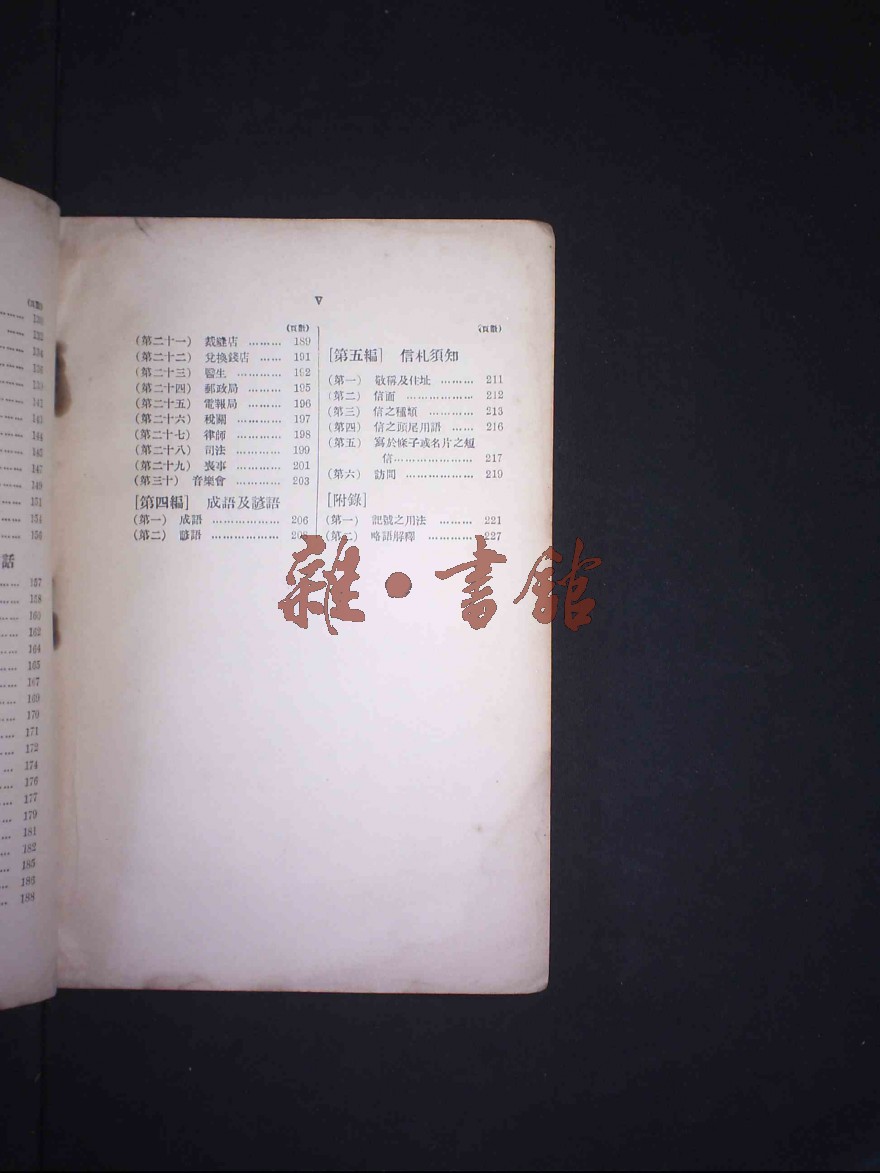 (頁數)
130
133
134
136
139
141
143
144
145
147
149
151
154
156
話
157
158
160
162
164
165
167
169
170
171
172
174
176
177
179
181
182
185
186
188
V
(頁數)
(第二十一) 裁縫店 ……… 189
(第二十二) 兌換錢店 …… 191
(第二十三) 醫生 ………… 192
(第二十四) 郵政局 ……… 195
(第二十五) 電報局 ……… 196
(第二十六) 稅關 ………… 197
(第二十七) 律師 ………… 198
(第二十八) 司法 ………… 199
(第二十九) 喪事 ………… 201
(第三十) 音樂會 ………… 203
[第四編] 成語及諺語
(第一) 成語 ……………… 206
(第二) 諺語 ………………
(頁數)
[第五編] 信札須知
(第一) 敬稱及住址 ……… 211
(第二) 信面 ……………… 212
(第三) 信之種類 ………… 213
(第四) 信之頭尾用語 …… 216
(第五) 寫於條子或名片之短
信 ……………… 217
(第六) 訪問 ……………… 219
[附錄]
(第一) 記號之用法 ……… 221
(第二) 略語解釋 ………… 227
雜·書館